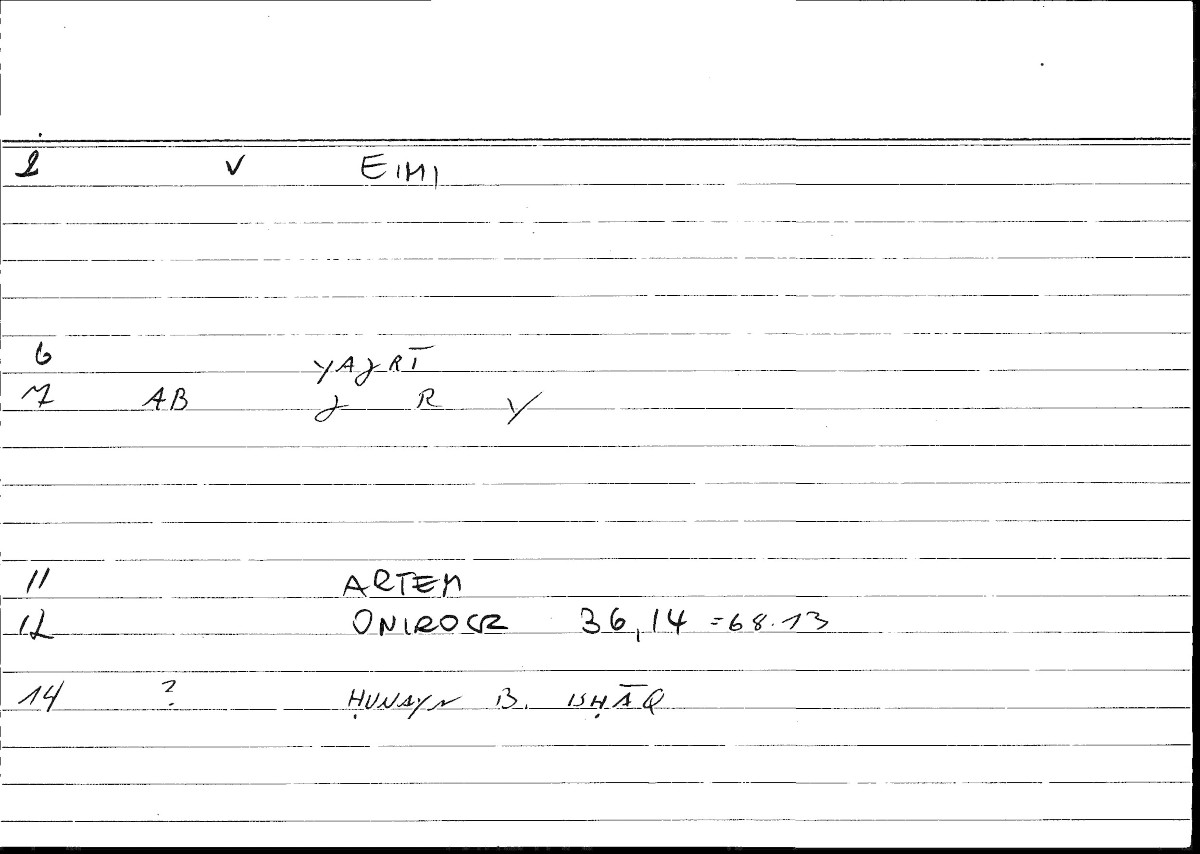 2 V EIMI
6 YAJRĪ
7 AB J R Y
11 ARTEM
12 ONIROCR 36,14 =68.13
14 ? ḤUNAYN B. ISḤĀQ